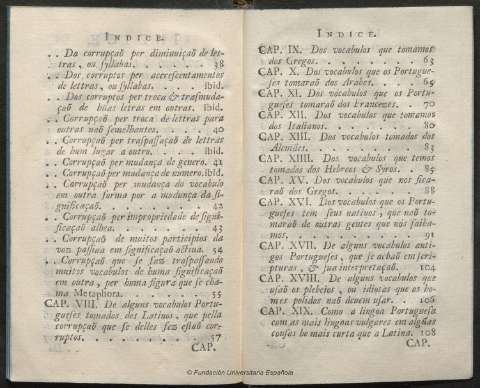 INDICE.
. . Da corrupçaõ per diminuiçaõ de let-
tras, ou syllabas. . . . . . 38
. . Dos corruptos per acrescentamentos
de letras, ou syllabas. . . . ibid.
. . Dos corruptos per troca & trasmuda-
çaõ de huas letras em outras. ibid.
. . Corrupçaõ per troca de letras para
outras naõ semelhantes. . . . 40
. . Corrupçaõ per traspassaçaõ de letras
de hum lugar a outro. . . . ibid.
. . Corrupçaõ per mudança de genero. 41
. . Corrupçaõ per mudança de numero. ibid.
. . Corrupçaõ per mudança do vocabulo
em outra forma por a mudança da si-
gnificaçaõ. . . . . . . 42
. . Corrupçaõ per impropriedade de signi-
ficaçaõ alhea. . . . . . 43
. . Corrupçaõ de muitos participios da
voz passiva em significaçaõ activa. 54
. . Corrupçaõ que se fez traspassando
muitos vocabulos de huma significaçaõ
em outra, per huma figura que se cha-
ma Metaphora. . . . . . 55
CAP. VIII. De alguns vocabulos Portu-
gueses tomados dos Latinos, que pella
corrupçaõ que se delles fez estaõ cor-
ruptos. . . . . . . . 57
CAP.
INDICE.
CAP. IX. Dos vocabulos que tomamos
dos Gregos. . . . . . . 63
CAP. X. Dos vocabulos que os Portugue-
ses tomaraõ dos Arabes. . . . 65
CAP. XI. Dos vocabulos que os Portu-
gueses tomaraõ dos Franceses. . 70
CAP. XII. Dos vocabulos que tomamos
dos Italianos. . . . . . 80
CAP. XIII. Dos vocabulos tomados dos
Alemães. . . . . . . . 83
CAP. XIIII. Dos vocabulos que temos
tomados dos Hebreos & Syros. . 85
CAP. XV. Dos vocabulos que nos fica-
raõ dos Gregos. . . . . . 88
CAP. XVI. Dos vocabulos que os Portu-
gueses tem seus nativos, que naõ to-
maraõ de outras gentes que nós saiba-
mos. . . . . . . . . 91
CAP. XVII. De alguns vocabulos anti-
gos Portugueses, que se achaõ em scri-
pturas, & sua interpretaçaõ. 104
CAP. XVIII. De alguns vocabulos que
usaõ os plebeios, ou idiotas que os ho-
mes polidos naõ devem usar. . 106
CAP. XIX. Como a lingoa Portuguesa
com as mais lingoas vulgares em algũas
cousas he mais curta que a Latina. 108
CAP.
© Fundación Universitaria Española